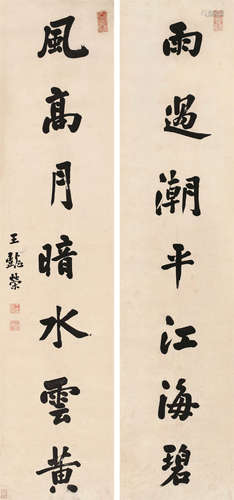 雨過潮平江海碧
風高月暗水雲黃
王懿榮